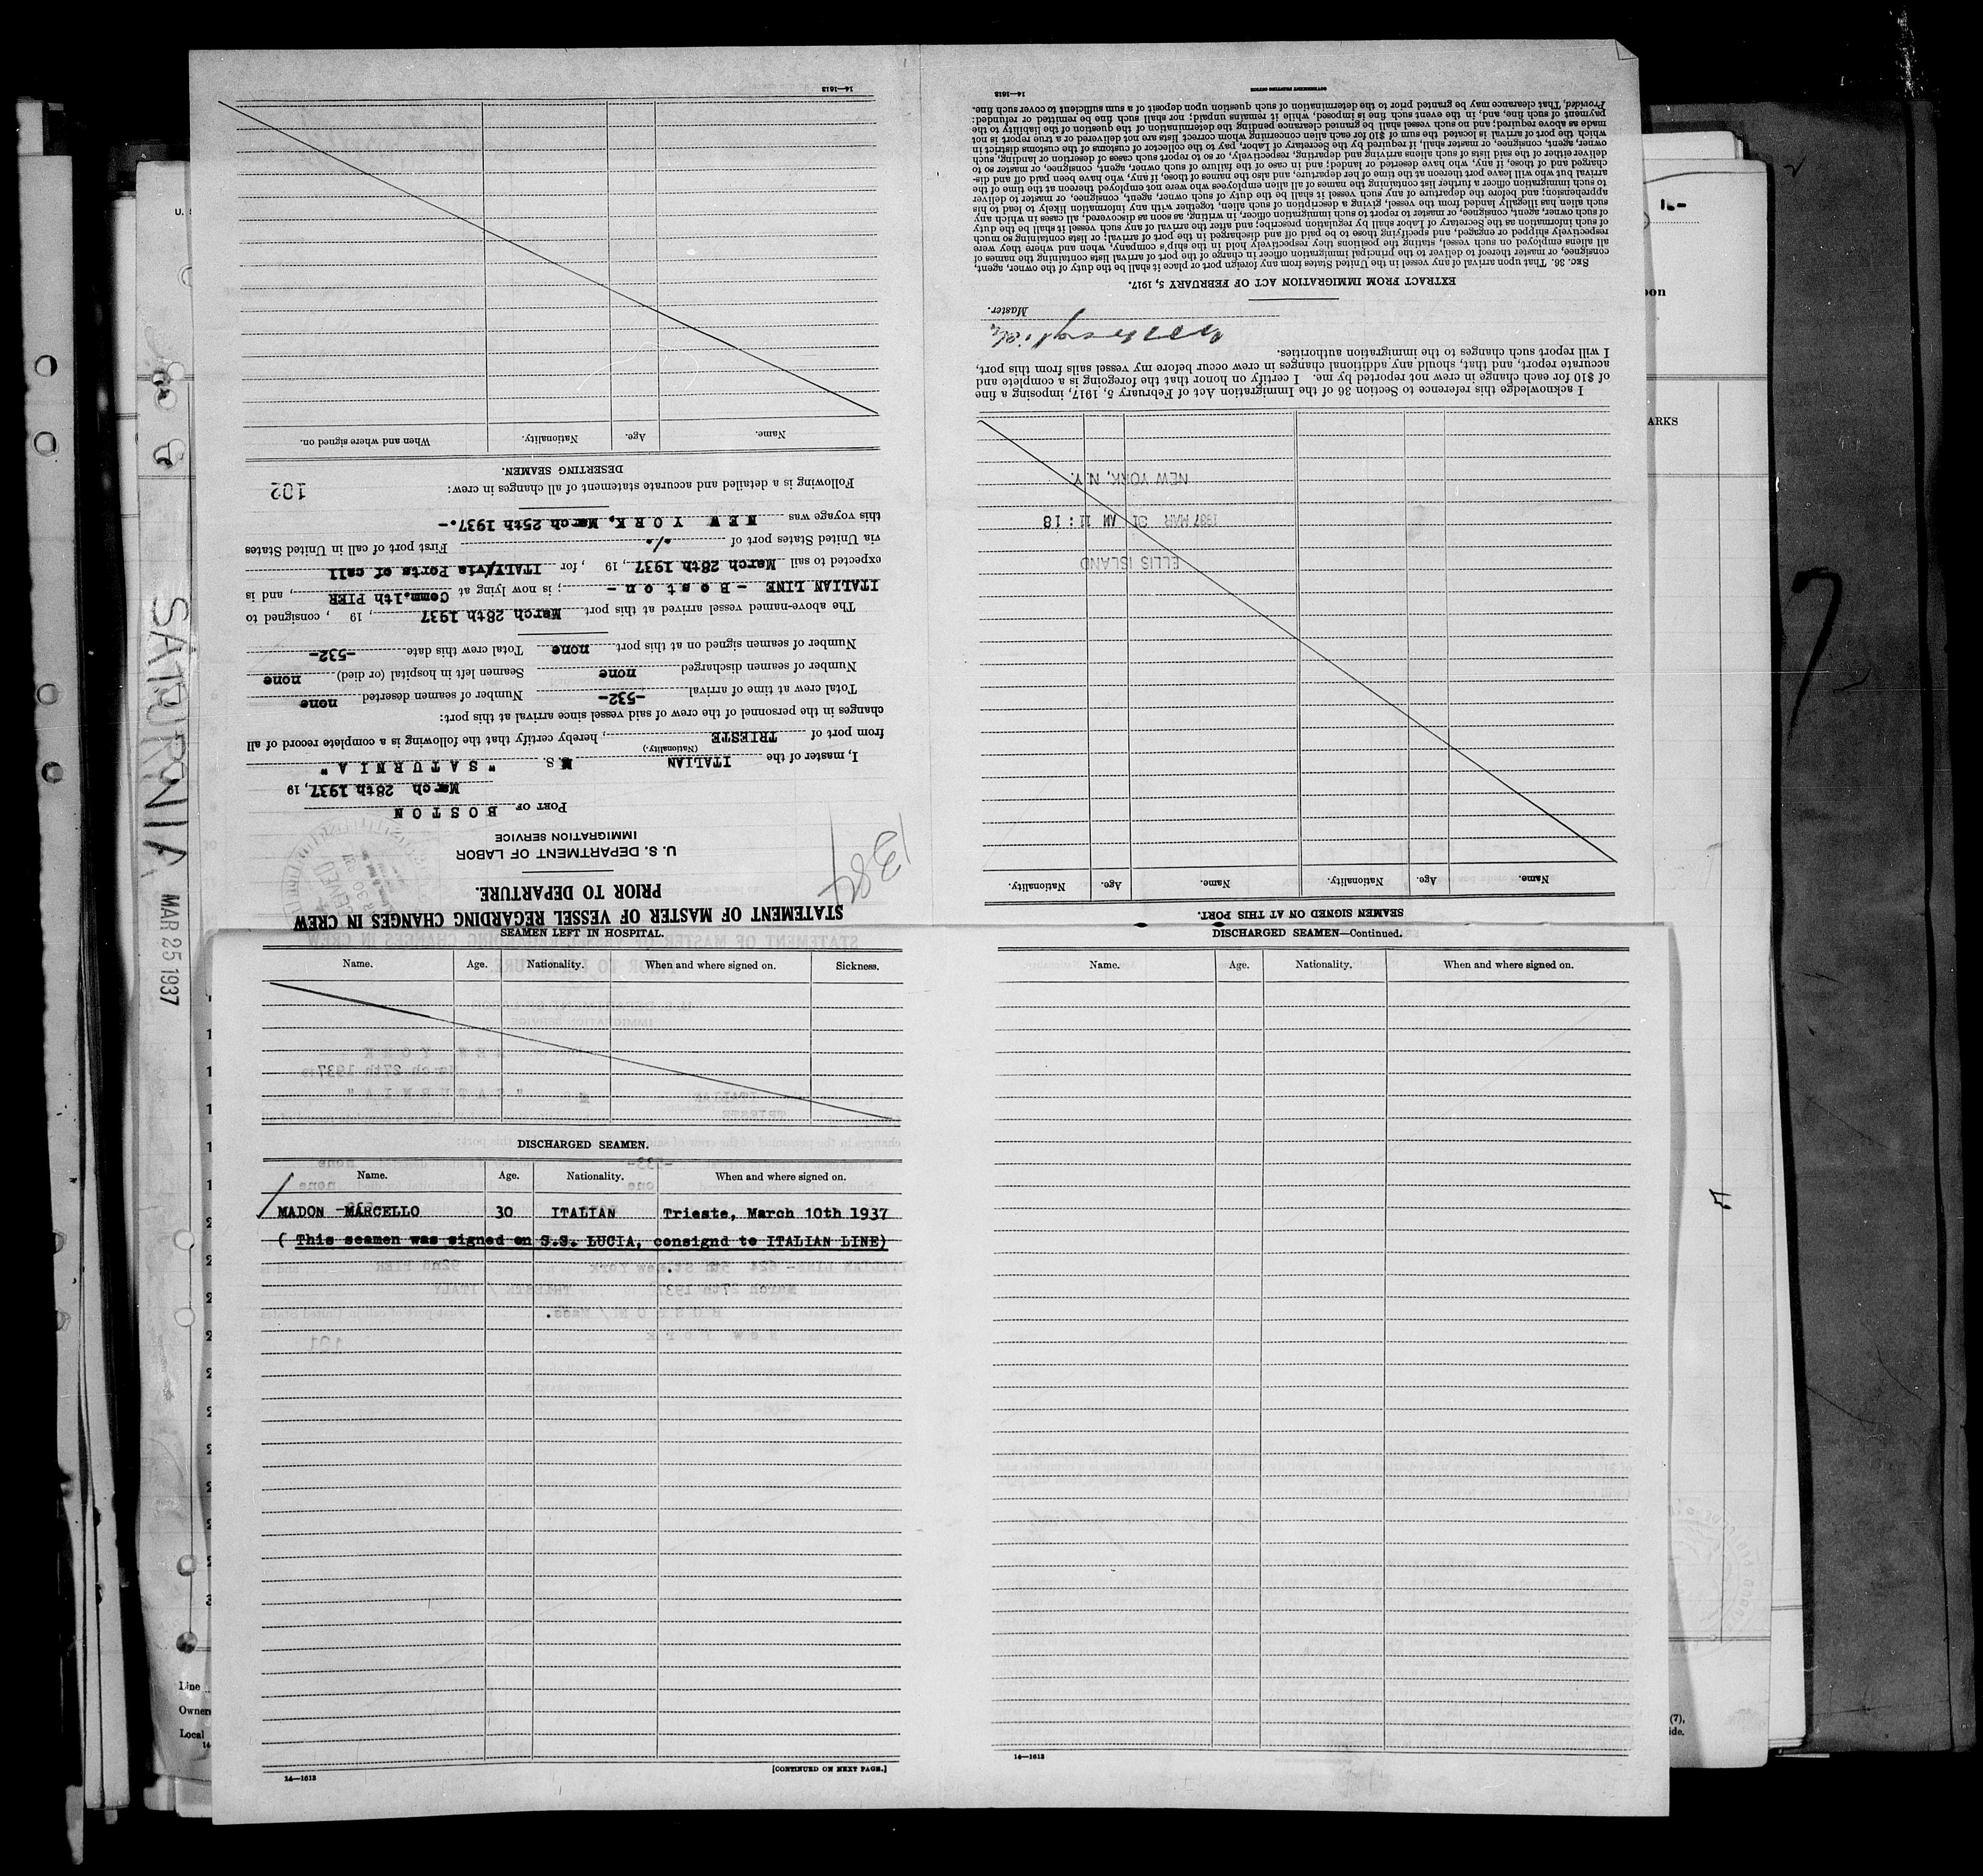 STATEMENT OF MASTER OF VESSEL REGARDING CHANGES IN CREW
PRIOR TO DEPARTURE.
U. S. DEPARTMENT OF LABOR
IMMIGRATION SERVICE
PORT OF BOSTON
March 28th 1937, 19
I, master of the ITALIAN M.S. "SATURNIA"
(Nationality.)
from port of TRIESTE, hereby certify that the following is a complete record of all
changes in the personnel of the crew of said vessel since arrival at this port:
Total crew at time of arrival -532- Number of seamen deserted none
Number of seamen discharged none Seamen left in hospital (or died) none
Number of seamen signed on at this port none Total crew this date -532-
The above-named vessel arrived at this port March 28th 1937, 19 , consigned to
ITALIAN LINE - Boston - ; is now lying at Comm.lth PIER, and is
expected to sail March 28th 1937, 19 , for ITALY/via Ports of call
via United States port of ./. First port of call in United States
this voyage was NEW YORK, March 25th 1937.-
Following is a detailed and accurate statement of all changes in crew:
102
DESERTING SEAMEN.
Name. Age. Nationality. When and where signed on.
14—1613
SEAMEN SIGNED ON AT THIS PORT.
Name. Age. Nationality. Name. Age. Nationality.
ELLIS ISLAND
1937 MAR 31 AM 11:18
NEW YORK, N.Y.
I acknowledge this reference to Section 36 of the Immigration Act of February 5, 1917, imposing a fine
of $10 for each change in crew not reported by me. I certify on honor that the foregoing is a complete and
accurate report, and that, should any additional changes in crew occur before my vessel sails from this port,
I will report such changes to the immigration authorities.
Master.
EXTRACT FROM IMMIGRATION ACT OF FEBRUARY 5, 1917.
SEC. 36. That upon arrival of any vessel in the United States from any foreign port or place it shall be the duty of the owner, agent,
consignee, or master thereof to deliver to the principal immigration officer in charge of the port of arrival lists containing the names of
all aliens employed on such vessel, stating the positions they respectively hold in the ship's company, when and where they were
respectively shipped or engaged, and specifying those to be paid off and discharged in the port of arrival; or lists containing so much
of such information as the Secretary of Labor shall by regulation prescribe; and after the arrival of any such vessel it shall be the duty
of such owner, agent, consignee, or master to report to such immigration officer, in writing, as soon as discovered, all cases in which any
such alien has illegally landed from the vessel, giving a description of such alien, together with any information likely to lead to his
apprehension; and before the departure of any such vessel it shall be the duty of such owner, agent, consignee, or master to deliver
to such immigration officer a further list containing the names of all alien employees who were not employed thereon at the time of the
arrival but who will leave port thereon at the time of her departure, and also the names of those, if any, who have been paid off and dis-
charged and of those, if any, who have deserted or landed; and in case of the failure of such owner, agent, consignee, or master so to
deliver either of the said lists of such aliens arriving and departing, respectively, or so to report such cases of desertion or landing, such
owner, agent, consignee, or master shall, if required by the Secretary of Labor, pay to the collector of customs of the customs district in
which the port of arrival is located the sum of $10 for each alien concerning whom correct lists are not delivered or a true report is not
made as above required; and no such vessel shall be granted clearance pending the determination of the question of the liability to the
payment of such fine, and, in the event such fine is imposed, while it remains unpaid; nor shall such fine be remitted or refunded:
Provided, That clearance may be granted prior to the determination of such question upon deposit of a sum sufficient to cover such fine.
14—1613 GOVERNMENT PRINTING OFFICE
SEAMEN LEFT IN HOSPITAL.
Name. Age. Nationality. When and where signed on. Sickness.
DISCHARGED SEAMEN.
Name. Age. Nationality. When and where signed on.
MADON -MARCELLO 30 ITALIAN Trieste, March 10th 1937
( This seamen was signed on S.S. LUCIA, consignd to ITALIAN LINE)
14—1613 [CONTINUED ON NEXT PAGE.]
DISCHARGED SEAMEN—Continued.
Name. Age. Nationality. When and where signed on.
14—1613
SATURNIA MAR 25 1937
Line
Owner
Local
ARKS